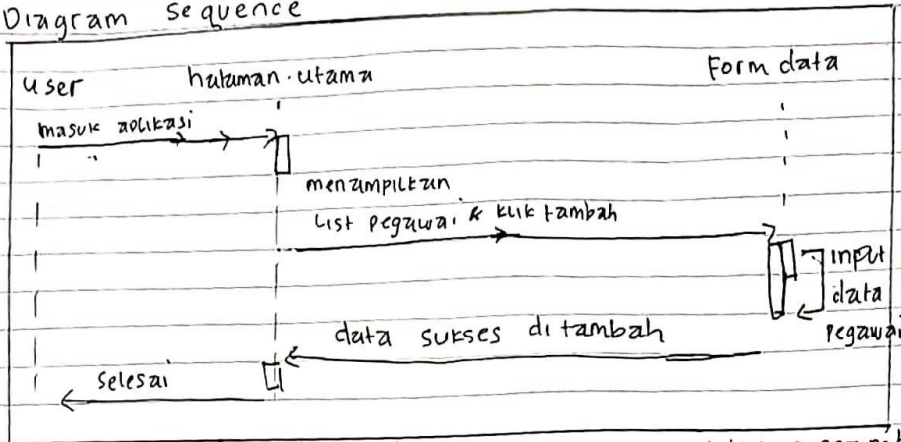 Diagram sequence
user halaman utama Form data
masuk aplikasi
menampilkan
List pegawai & klik tambah
input
data
pegawai
data sukses di tambah
selesai